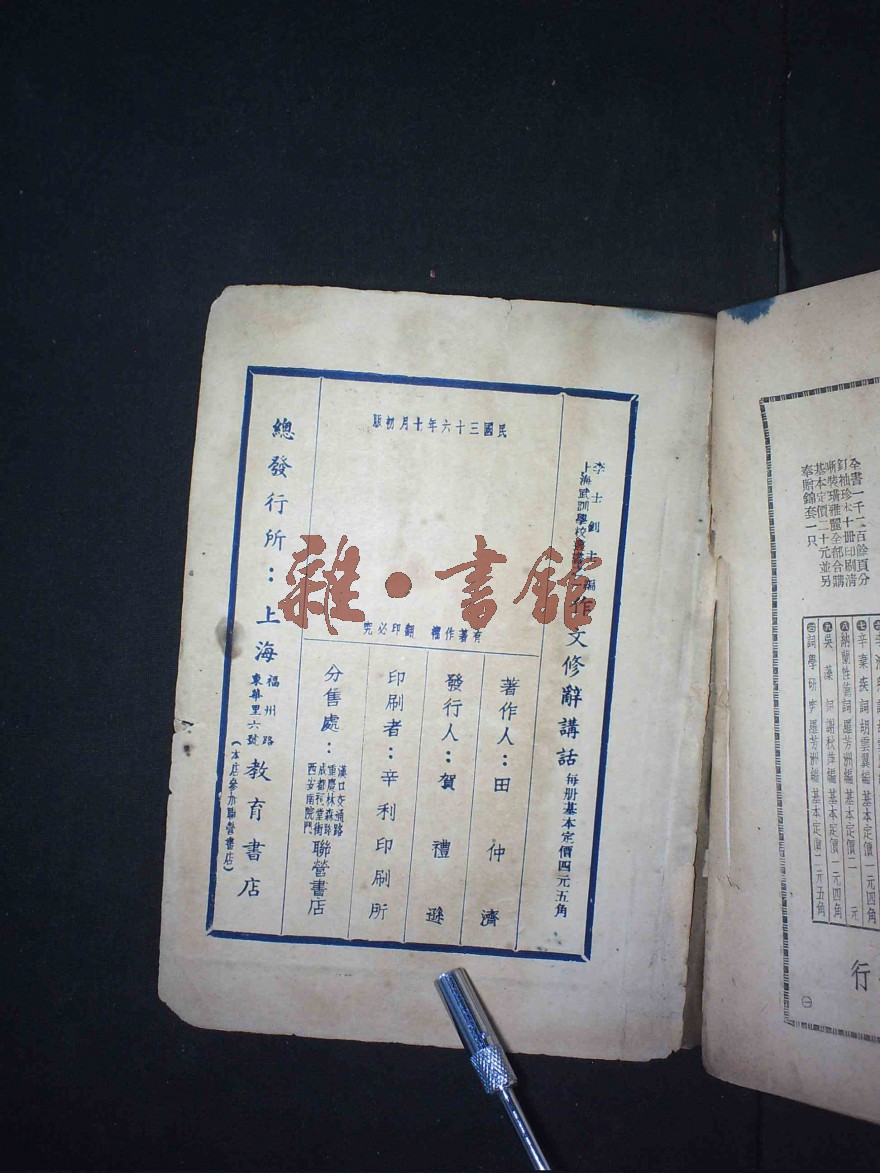 李士釗主編
上海武訓學校叢書之一
作文修辭講話 每册基本定價四元五角
民國三十六年十月初版
有著作權 翻印必究
著作人：田仲濟
發行人：賀禮遜
印刷者：辛利印刷所
分售處：
漢口交通路
重慶林森路
成都祠堂街
西安南院門
聯營書店
總發行所：上海
福州路
東華里六號
教育書店
（本店參加聯營書店）
雜·書館
全書一千二百餘頁分
釘袖珍本十冊印刷清
晰裝璜雅麗全部合購
基本定價二十元並另
奉贈錦套一只
七 辛棄疾詞 胡雲翼編 基本定價一元四角
八 納蘭性德詞 羅芳洲編 基本定價一元四角
九 吳藻詞 謝秋萍編 基本定價二元
詞學研究 羅芳洲編 基本定價二元五角
行